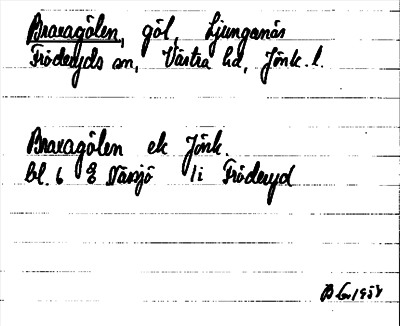 Braxagölen, göl, Ljunganäs
Fröderyds sn, Västra hd, Jönk. l.
Braxagölen ek Jönk.
bl. 6 E Nässjö li Fröderyd